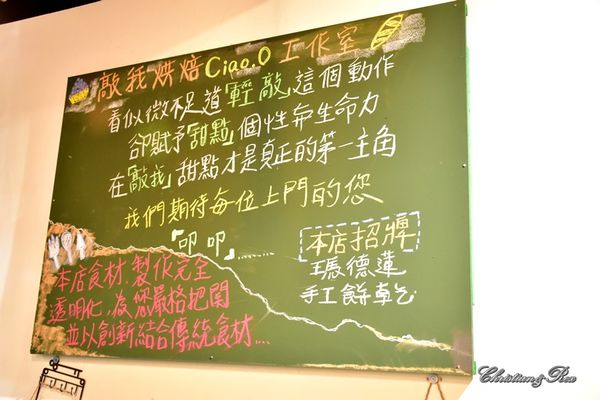 敲我烘焙Ciao.O工作室
看似微不足道「輕敲」這個動作
卻賦予「甜點」個性與生命力
在「敲我」甜點才是真正的第一主角
我們期待每位上門的您
「叩叩」........
本店招牌
瑪德蓮
手工餅乾
本店食材.製作完全
透明化,為您嚴格把關
並以創新結合傳統食材....
Christian & Rex